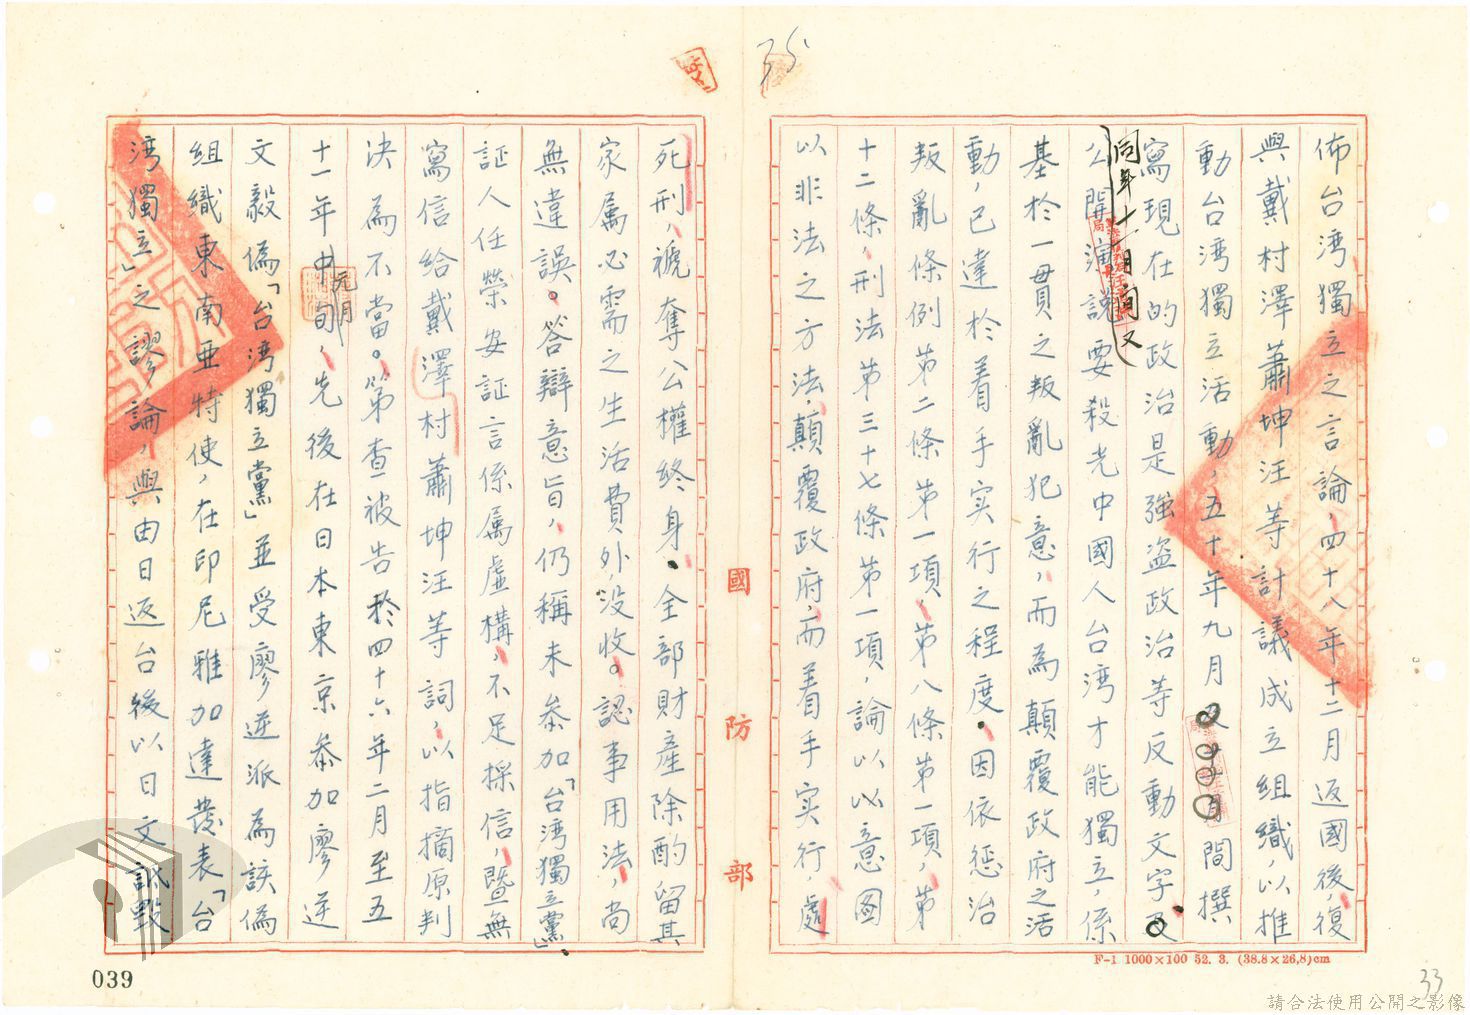 35
佈台湾獨立之言論，四十八年十二月返國後，復
與戴村澤蕭坤汪等計議成立組織，以推
動台湾獨立活動，五十年九月間撰
寫現在的政治是強盗政治等反動文字及
同年十一月間又
公開演說要殺光中國人台湾才能獨立，係
基於一貫之叛亂犯意，而為顛覆政府之活
動，已達於着手实行之程度。因依惩治
叛亂條例第二條第一項，第八條第一項，第
十二條，刑法第三十七條第一項，論以以意圖
以非法之方法，顛覆政府，而着手实行，處
國防部
死刑，褫奪公權終身。全部財產除酌留其
家属必需之生活費外，没收。認事用法，尚
無違誤。答辯意旨，仍稱未叅加「台湾獨立黨」。
証人任荣安証言係属虛構，不足採信，暨無
寫信給戴澤村蕭坤汪等詞，以指摘原判
決為不當。第查被告於四十六年二月至五
十一年元月中旬，先後在日本東京叅加廖逆
文毅偽「台湾獨立黨」並受廖逆派為該偽
組織東南亚特使，在印尼雅加達發表「台
湾獨立」之謬論，與由日返台後以日文詆毀
F-1 1000×100 52. 3. (38.8×26,8)cm
039
33
請合法使用公開之影像